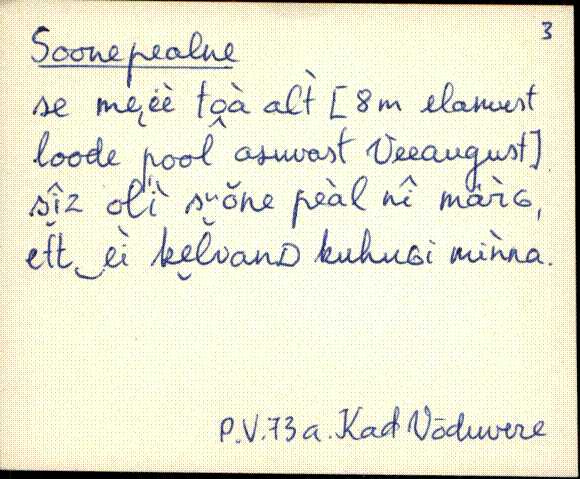 3
Soonepealne
se mẹìe̯ tọ̀à alt̀ [8m elamust
loode pool asuvast Veeaugust]
sîz olì su̯ŏne pèàl nî màrG,
et̆t‿èì kĕl̀vanD kuhuGi mìǹna.
P.V.73 a. Kad Võduvere